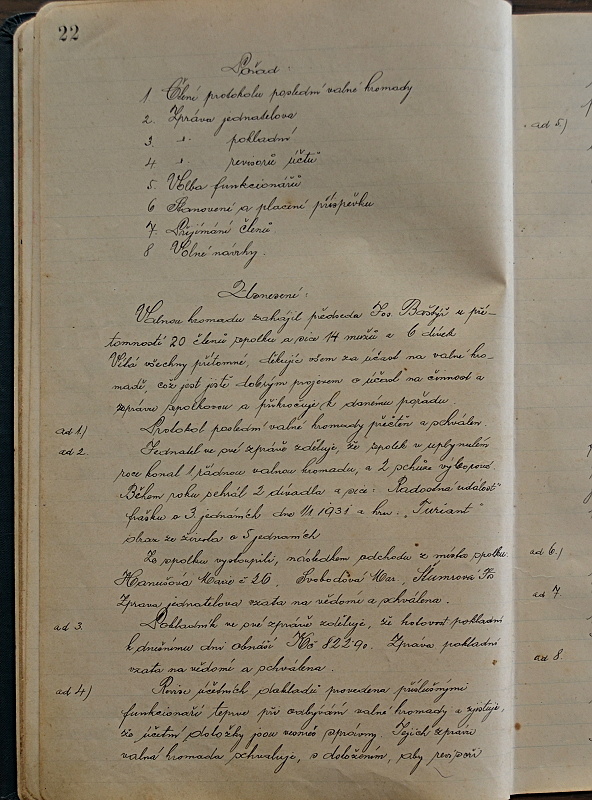 22
Pořad
1. Čtení protokolu poslední valné hromady
2. Zpráva jednatelova
3. -"- pokladní
4 -"- revisorů účtů
5. Volba funkcionářů
6 Stanovení a placení příspěvku
7. Přijímání členů
8 Volné návrhy.
Usnesení:
Valnou hromadu zahájil předseda Jos. Baštýř u pří-
tomnosti 20 členů spolku a sice 14 mužů a 6 dívek
Vítá všechny přítomné, děkuje všem za účast na valné hro-
madě, což jest jistě dobrým projevem o účast na činnost a
zprávu spolkovou a přikročuje k danému pořadu.
ad 1.) Protokol poslední valné hromady přečten a schválen.
ad 2. Jednatel ve své zprávě zděluje, že spolek v uplynulém
roce konal 1 řádnou valnou hromadu, a 2 schůze výborové.
Během roku sehrál 2 divadla a sice: "Radostná událost"
frašku o 3 jednáních dne 1/1 1931 a hru. "Furiant"
obraz ze života o 5 jednáních
Ze spolku vystoupili, následkem odchodu z místa spolku.
Hanušová Marie č 26. Svobodová Mar,
Zpráva jednatelova vzata na vědomí a schválena.
ad 3. Pokladník ve své zprávě zděluje, že hotovost pokladní
k dnešnímu dni obnáší Kč 822.90. Zpráva pokladní
vzata na vědomí a schválena.
ad 4) Revise účetních dokladů provedena příslušnými
funkcionáři teprve při odbývání valné hromady a zjistuje,
že účetní doložky jsou vesměs správny. Jejich zprávu
valná hromada schvaluje, s doložením, aby revisoři
ad 5.)
ad 6.)
ad 7.
ad 8.